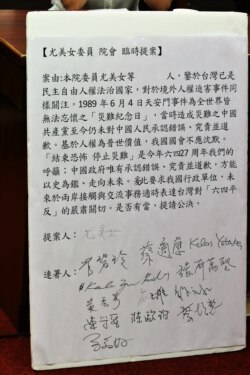 【尤美女委員 院會 臨時提案】
案由:本院委員尤美女等　　　人,鑒於台灣已是
民主自由人權法治國家,對於境外人權迫害事件同
樣關注。1989 年 6 月 4 日天安門事件為全世界皆
無法忘懷之「災難紀念日」,當時造成災難之中國
共產黨至今仍未對中國人民承認錯誤、究責並道
歉。基於人權為普世價值,我國國會不應沈默。
「結束恐怖 停止災難」是今年六四27週年我們的
呼籲;中國政府唯有承認錯誤、究責並道歉,方能
以史為鑑,走向未來。爰此要求我國行政單位,未
來於兩岸接觸與交流事務適時表達台灣對「六四平
反」的嚴肅關切。是否有當,提請公決。
提案人:尤美女
連署人:李麗芬 蔡適應 Kolas Yotaka
陳欧珀